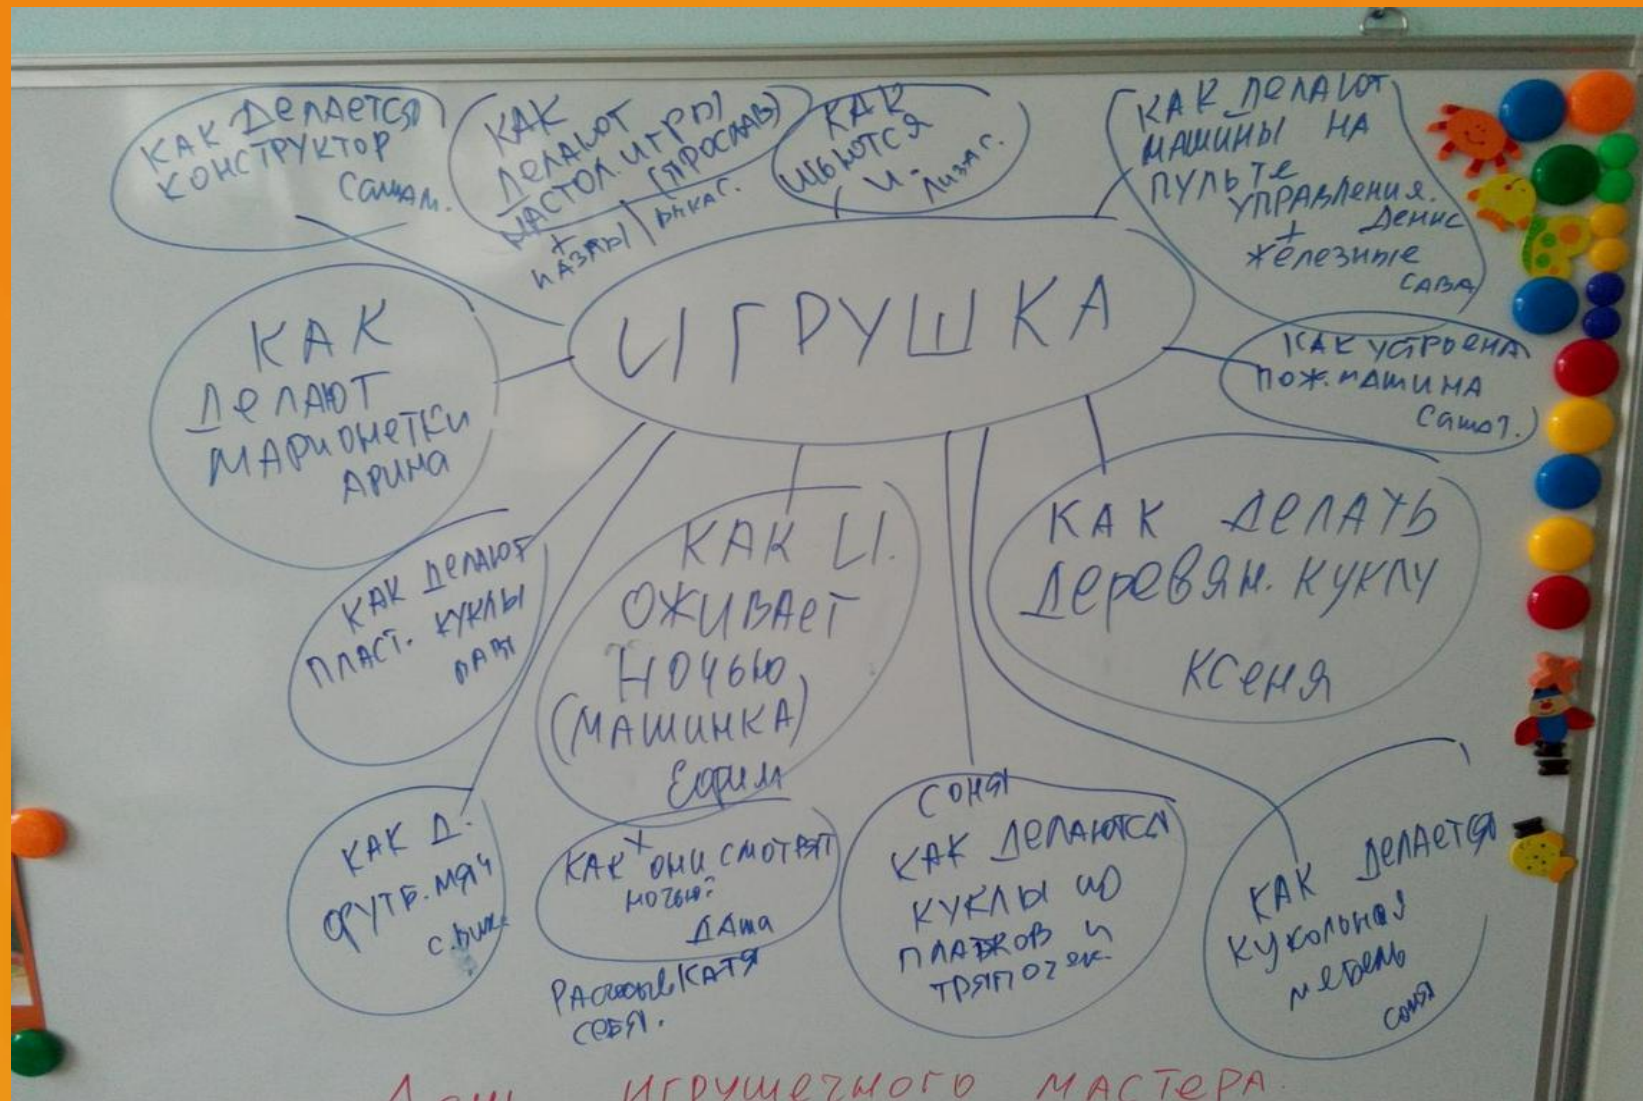 КАК ДЕЛАЕТСЯ
КОНСТРУКТОР
САША М.
КАК
ДЕЛАЮТ
НАСТОЛ. ИГРЫ
(ЯРОСЛАВ)
+
ПАЗЛЫ
КАК
ШЬЮТСЯ
И.
ЛИЗА Г.
КАК ДЕЛАЮТ
МАШИНЫ НА
ПУЛЬТЕ
УПРАВЛЕНИЯ.
ДЕНИС
+
ЖЕЛЕЗНЫЕ
САВА
ИГРУШКА
КАК УСТРОЕНА
ПОЖ. МАШИНА
Саша Т.
КАК
ДЕЛАЮТ
МАРИОНЕТКИ
АРИНА
КАК ДЕЛАЮТ
ПЛАСТ. КУКЛЫ
КАК И.
ОЖИВАЕТ
НОЧЬЮ
(МАШИНКА)
Ефим
КАК ДЕЛАТЬ
ДЕРЕВЯН. КУКЛУ
КСЕНЯ
КАК Д.
ФУТБ. МЯЧ
КАК ОНИ СМОТРЯТ
НОЧЬЮ?
ДАША
КАТЯ
СЕБЯ.
СОНЯ
КАК ДЕЛАЮТСЯ
КУКЛЫ ИЗ
ПЛАТКОВ И
ТРЯПОЧЕК
КАК ДЕЛАЕТСЯ
КУКОЛЬНАЯ
МЕБЕЛЬ
СОНЯ
ИГРУШЕЧНОГО МАСТЕРА.